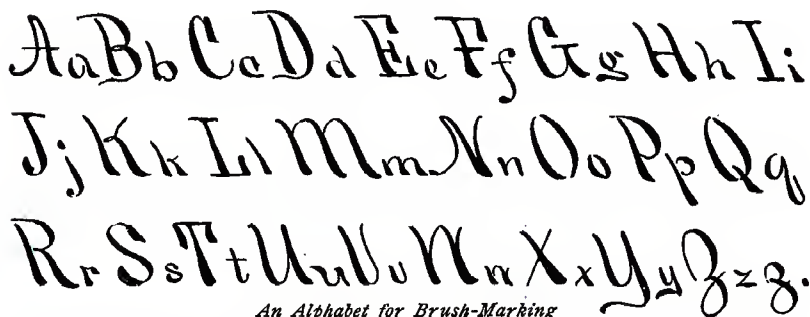 AaBbCcDdEeFfGgHhIi
JjKkLlMmNnOoPpQq
RrSsTtUuVvWwXxYyZzz.
An Alphabet for Brush-Marking